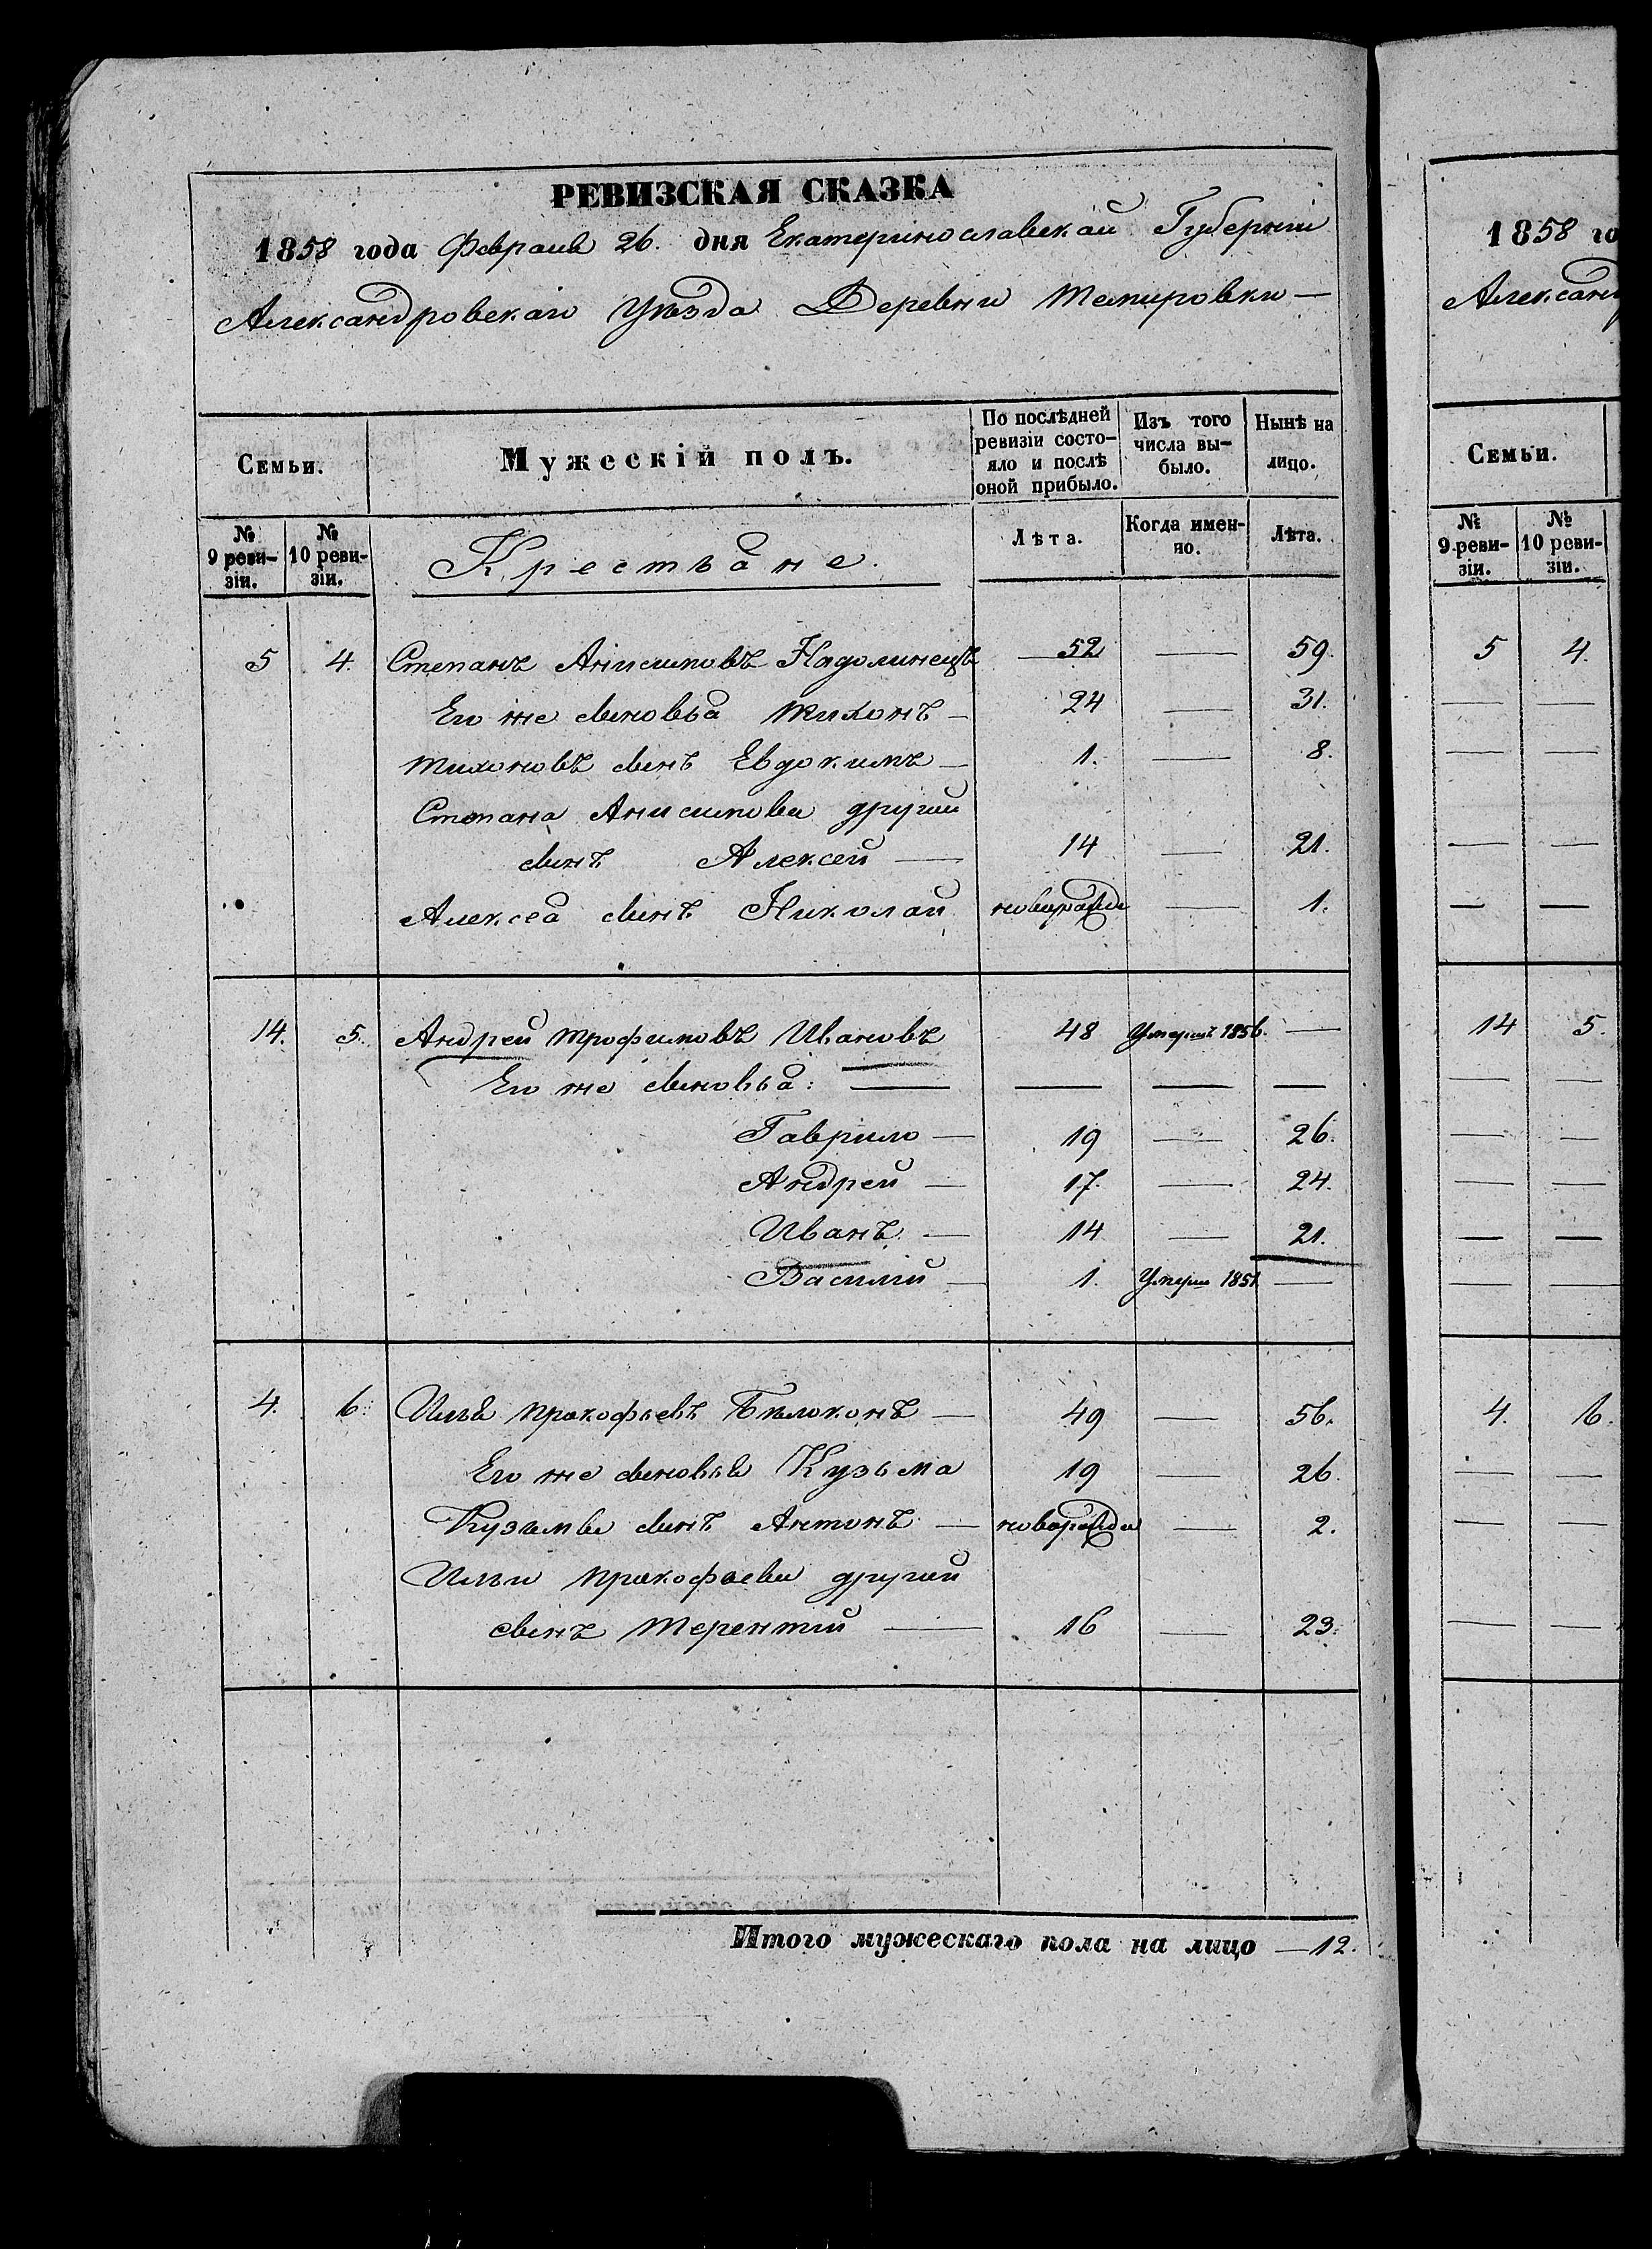 РЕВИЗСКАЯ СКАЗКА
1858 года Февраля 26. дня Екатеринославской Губерніи
Александровскаго Уѣзда Деревни Темировки —
Семьи. Мужескій полъ. По послѣдней ревизіи состояло и послѣ оной прибыло. Изъ того числа выбыло. Нынѣ на лицо.
№ 9 ревизіи. № 10 ревизіи. Крестьяне. Лѣта. Когда именно. Лѣта.
5 4. Степанъ Анисимовъ Надолинецъ 52 — 59.
Его же сыновья Тихонъ — 24 — 31.
Тихоновъ сынъ Евдокимъ — 1. — 8.
Степана Анисимова другий
сынъ Алексей — 14 — 21.
Алексея сынъ Николай новорожд — 1.
14. 5. Андрей Трофимовъ Ивановъ 48 Умеръ 1856. —
Его же сыновья: — — — —
Гаврило — 19 — 26.
Андрей — 17. — 24.
Иванъ — 14 — 21.
Василий — 1. Умеръ 1851. —
4. 6. Илья Прокофьевъ Бѣлоконъ — 49 — 56.
Его же сыновья Кузьма 19 — 26.
Кузьмы сынъ Антонъ — новорожд — 2.
Ильи Прокофьева другий
сынъ Терентий — 16 — 23.
Итого мужескаго пола на лицо — 12.
1858 го
Александ
Семьи.
№ 9 ревизіи. № 10 ревизіи.
5 4.
— —
— —
— —
— —
14 5.
— —
— —
— —
— —
— —
4. 6.
— —
— —
— —